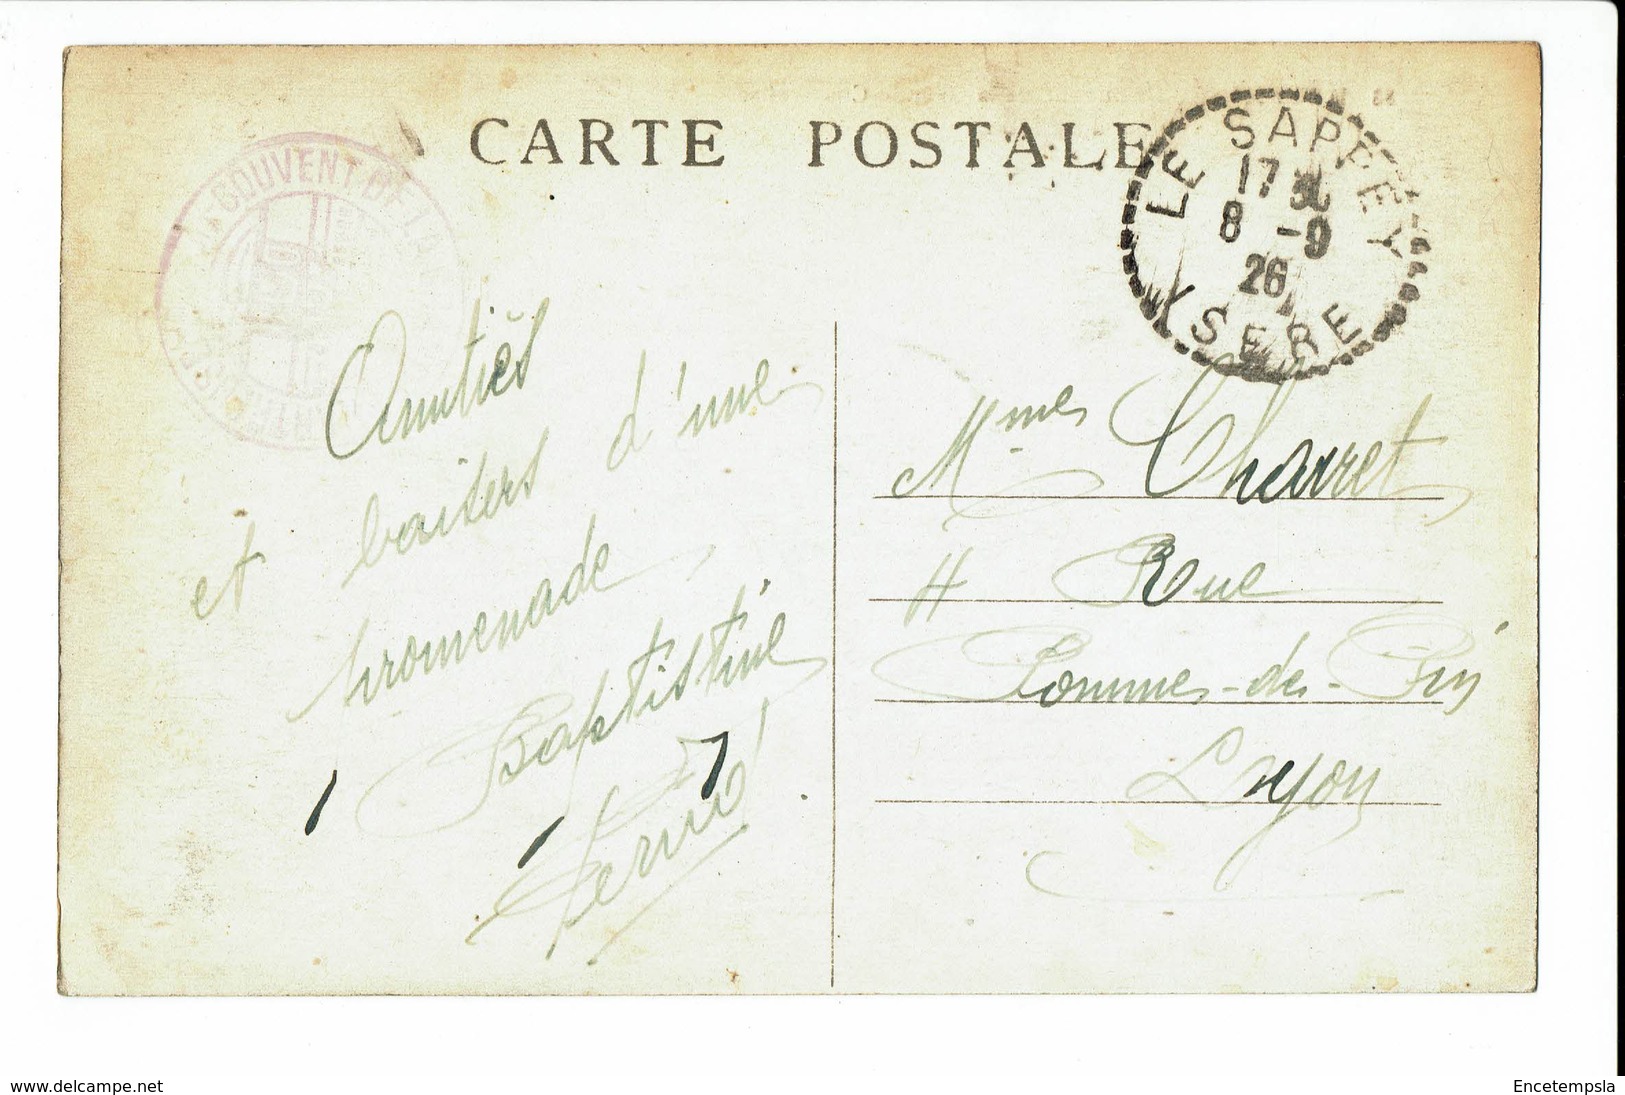 CARTE POSTALE
COUVENT DE LA
LE SAPPEY
17 30
8 -9
26
ISERE
Amitiés
et baisers d'une
promenade,
Baptistine
Mmes Charret
4 Rue
Pommes-de-Pin
Lyon
www.delcampe.net
Encetempsla